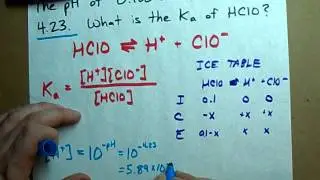 The pH of 0.100
4.23. What is the Ka of HClO?
HClO ⇌ H⁺ + ClO⁻
Ka = [H⁺][ClO⁻] / [HClO]
ICE TABLE
HClO ⇌ H⁺ + ClO⁻
I 0.1 0 0
C -x +x +x
E 0.1-x x x
[H⁺] = 10^-pH = 10^-4.23
= 5.89 x 10